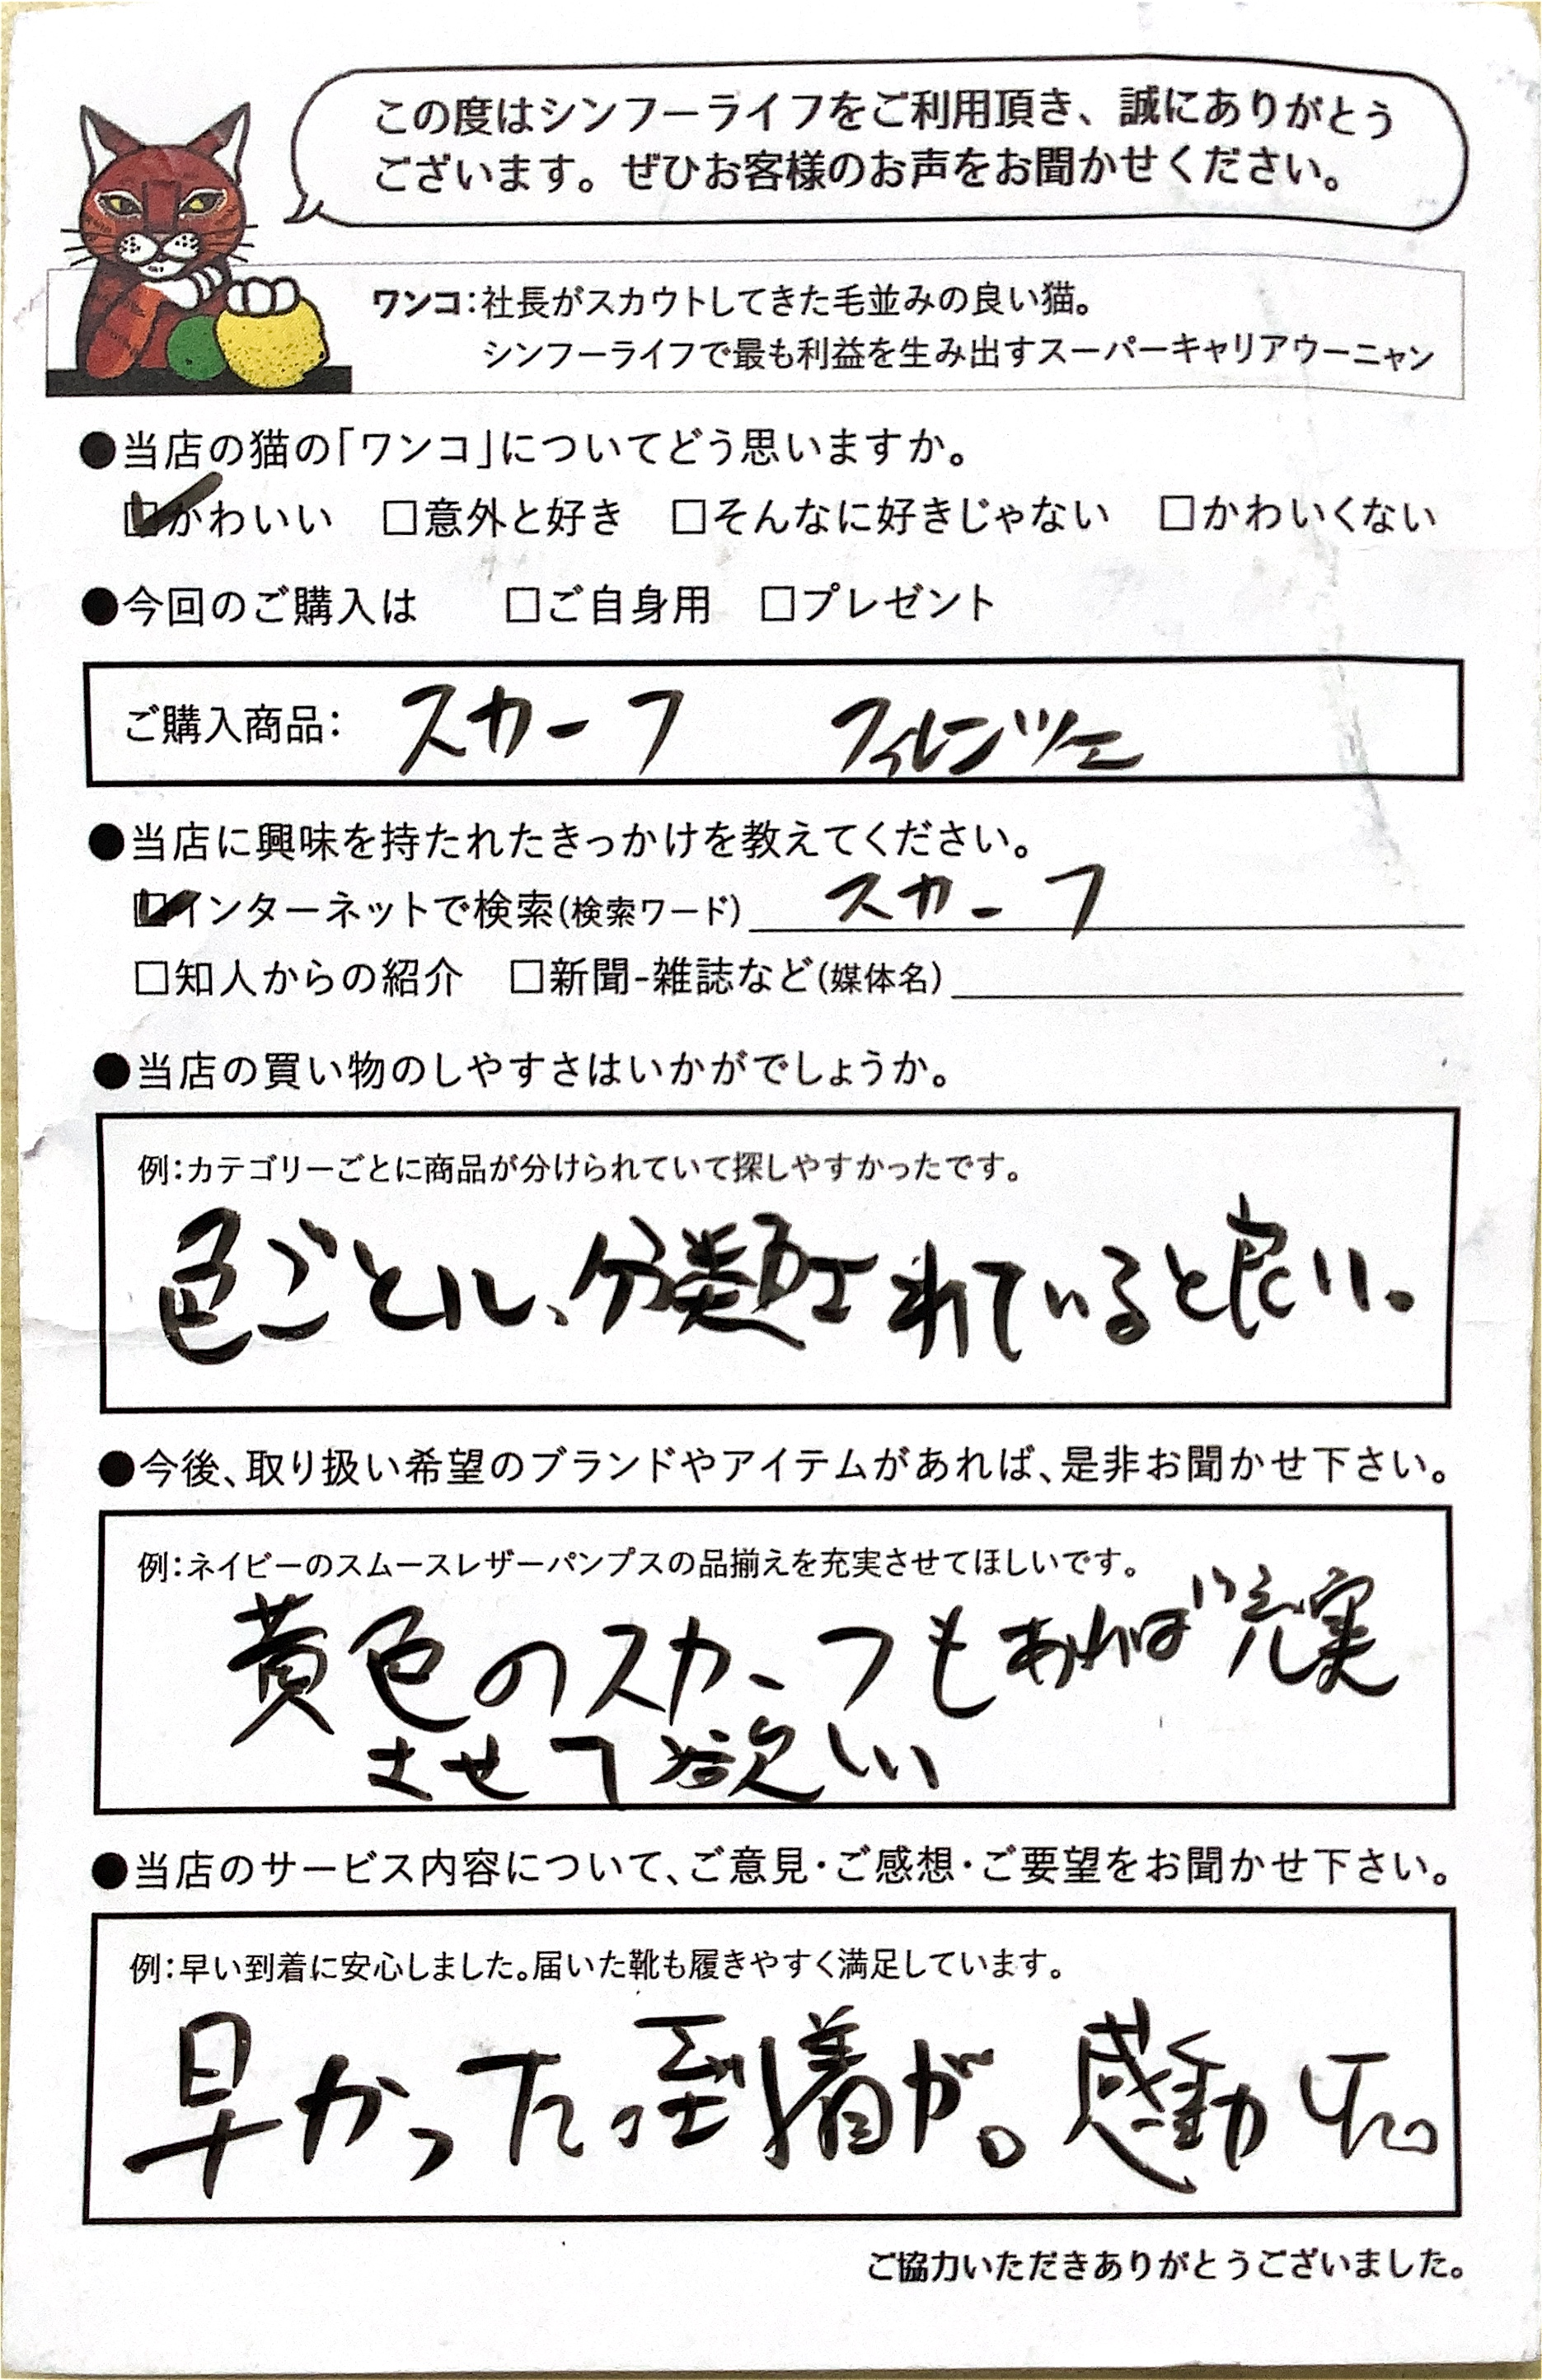 この度はシンフーライフをご利用頂き、誠にありがとう
ございます。ぜひお客様のお声をお聞かせください。
ワンコ：社長がスカウトしてきた毛並みの良い猫。
シンフーライフで最も利益を生み出すスーパーキャリアウーニャン
●当店の猫の「ワンコ」についてどう思いますか。
☑かわいい □意外と好き □そんなに好きじゃない □かわいくない
●今回のご購入は □ご自身用 □プレゼント
ご購入商品： スカーフ フィレンツェ
●当店に興味を持たれたきっかけを教えてください。
☑インターネットで検索(検索ワード) スカーフ
□知人からの紹介 □新聞-雑誌など(媒体名)
●当店の買い物のしやすさはいかがでしょうか。
例：カテゴリーごとに商品が分けられていて探しやすかったです。
色ごとに、分類されていると良い。
●今後、取り扱い希望のブランドやアイテムがあれば、是非お聞かせ下さい。
例：ネイビーのスムースレザーパンプスの品揃えを充実させてほしいです。
黄色のスカーフもあれば充実
させて欲しい
●当店のサービス内容について、ご意見・ご感想・ご要望をお聞かせ下さい。
例：早い到着に安心しました。届いた靴も履きやすく満足しています。
早かった到着が。感動した。
ご協力いただきありがとうございました。